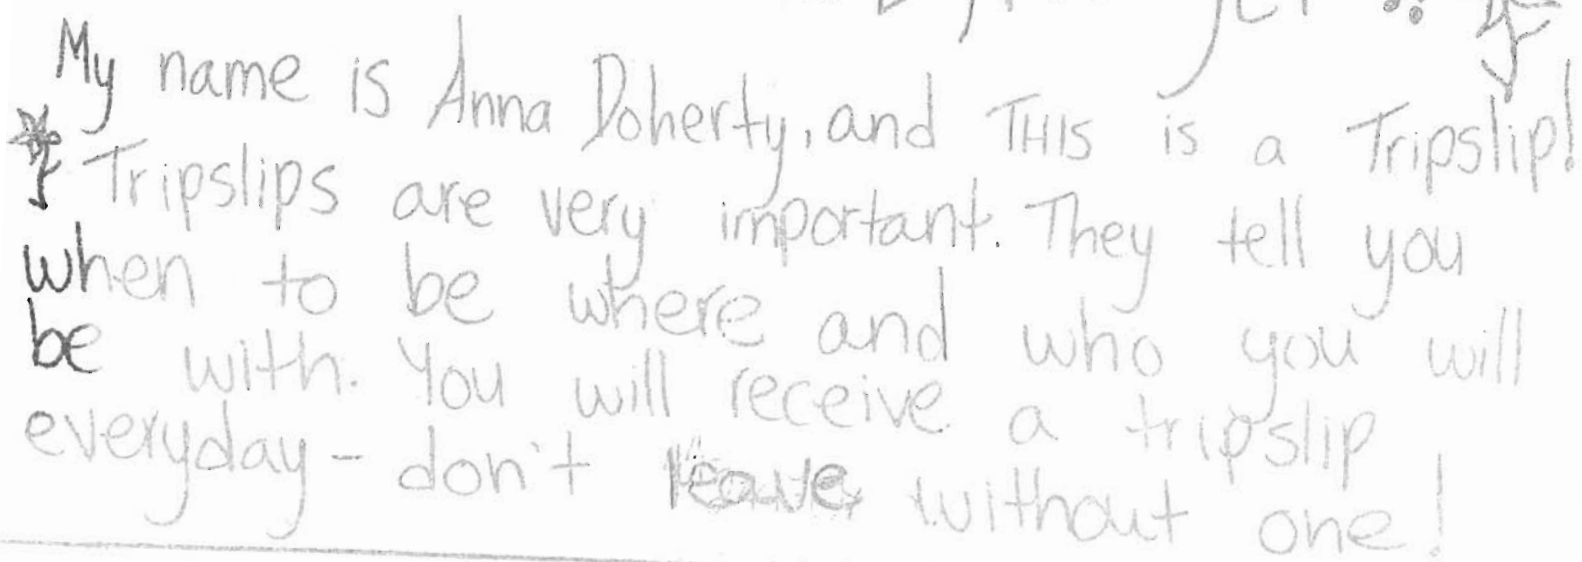 My name is Anna Doherty, and THIS is a Tripslip!
Tripslips are very important. They tell you
when to be where and who you will
be with. You will receive a tripslip
everyday - don't leave without one!